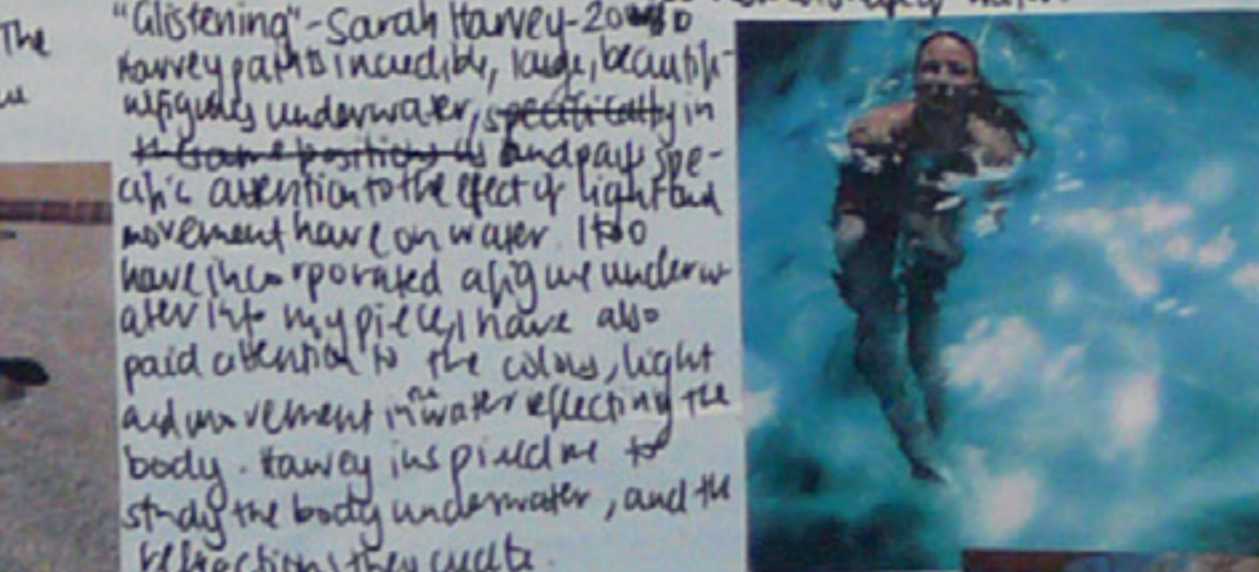 The
"Glistening" - Sarah Harvey - 20
Harvey paints incredible, large, beautif-
ul figures underwater, specifically in
the same positions as and pays spe-
cific attention to the effect of light and
movement have on water. I too
have incorporated a figure underw-
ater into my piece, I have also
paid attention to the colour, light
and movement in the water reflecting the
body. Harvey inspired me to
study the body underwater, and the
refractions they create.